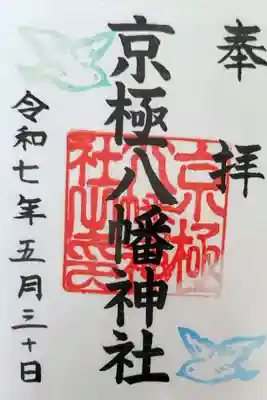 奉拝
京極八幡神社
京極八幡神社之印
令和七年五月三十日